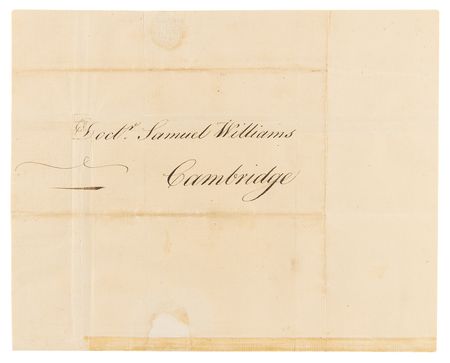 Doct.r Samuel Williams
Cambridge